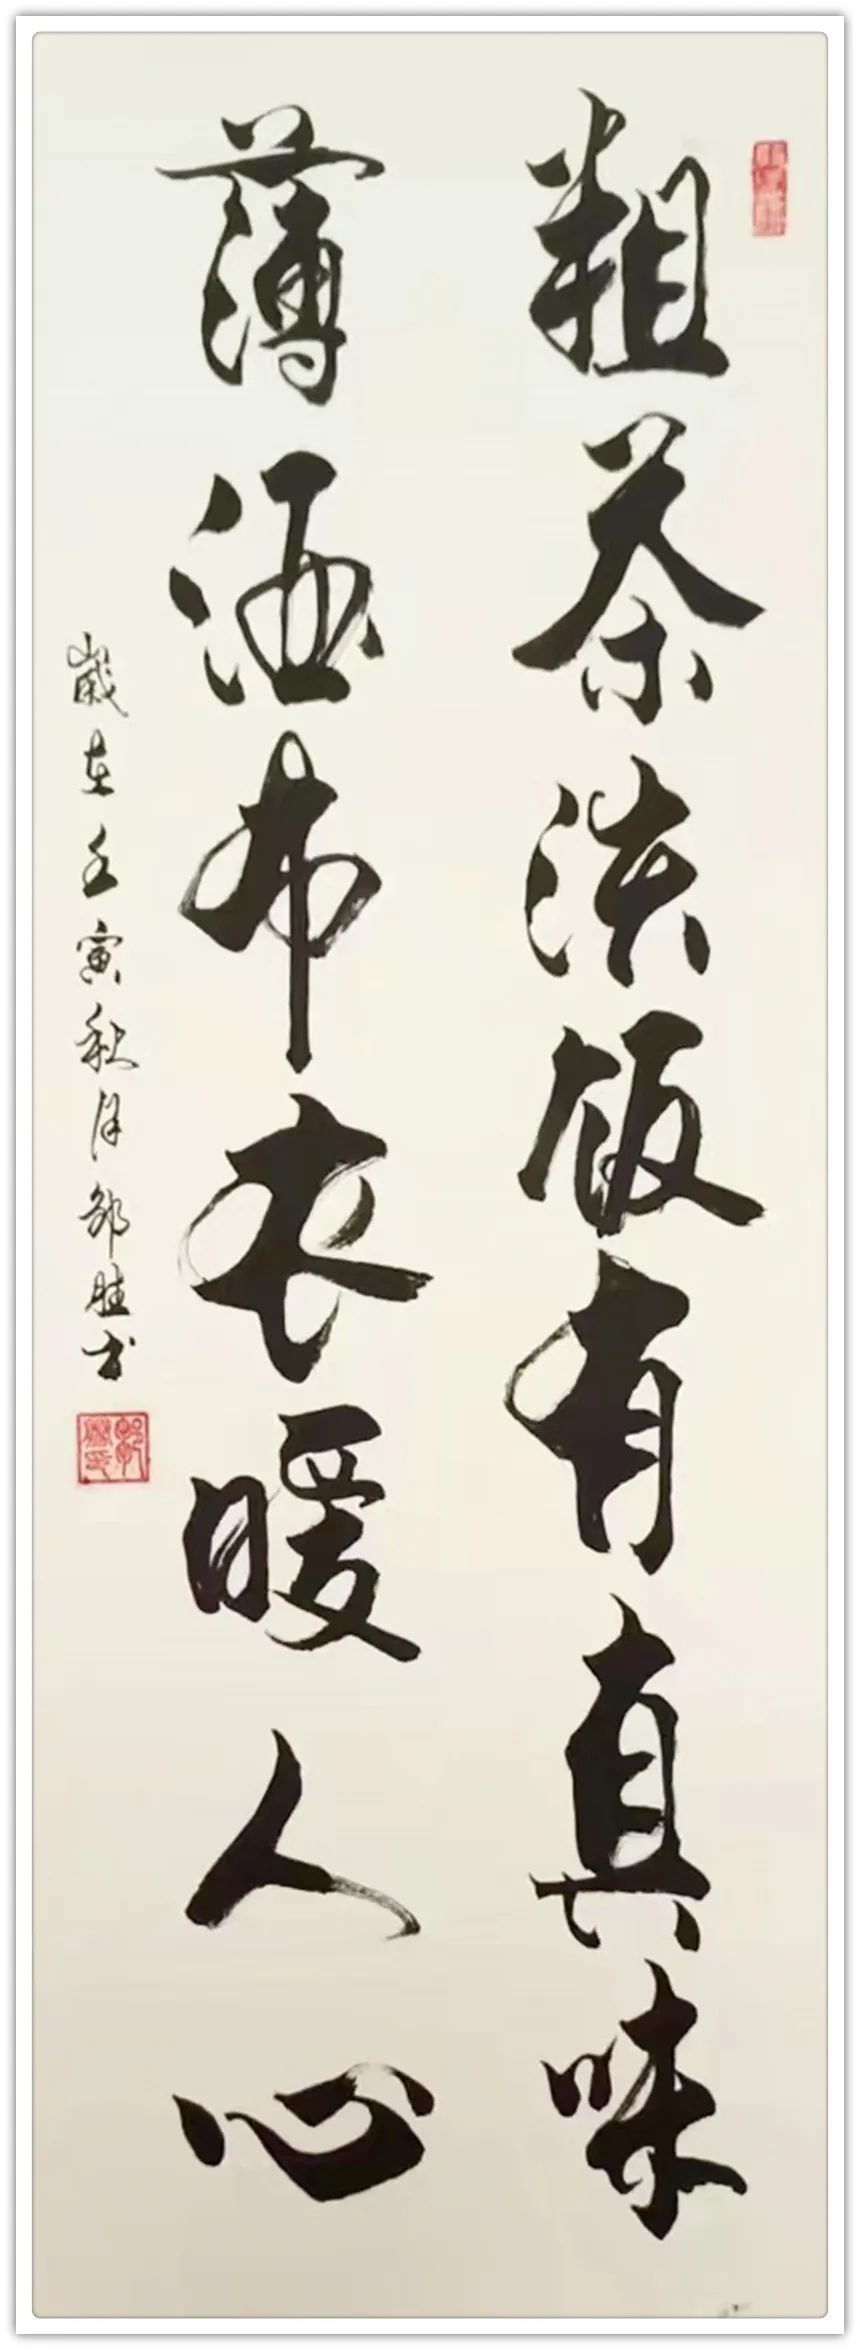 粗茶淡饭有真味
薄酒布衣暖人心
岁在壬寅秋月邹胜书